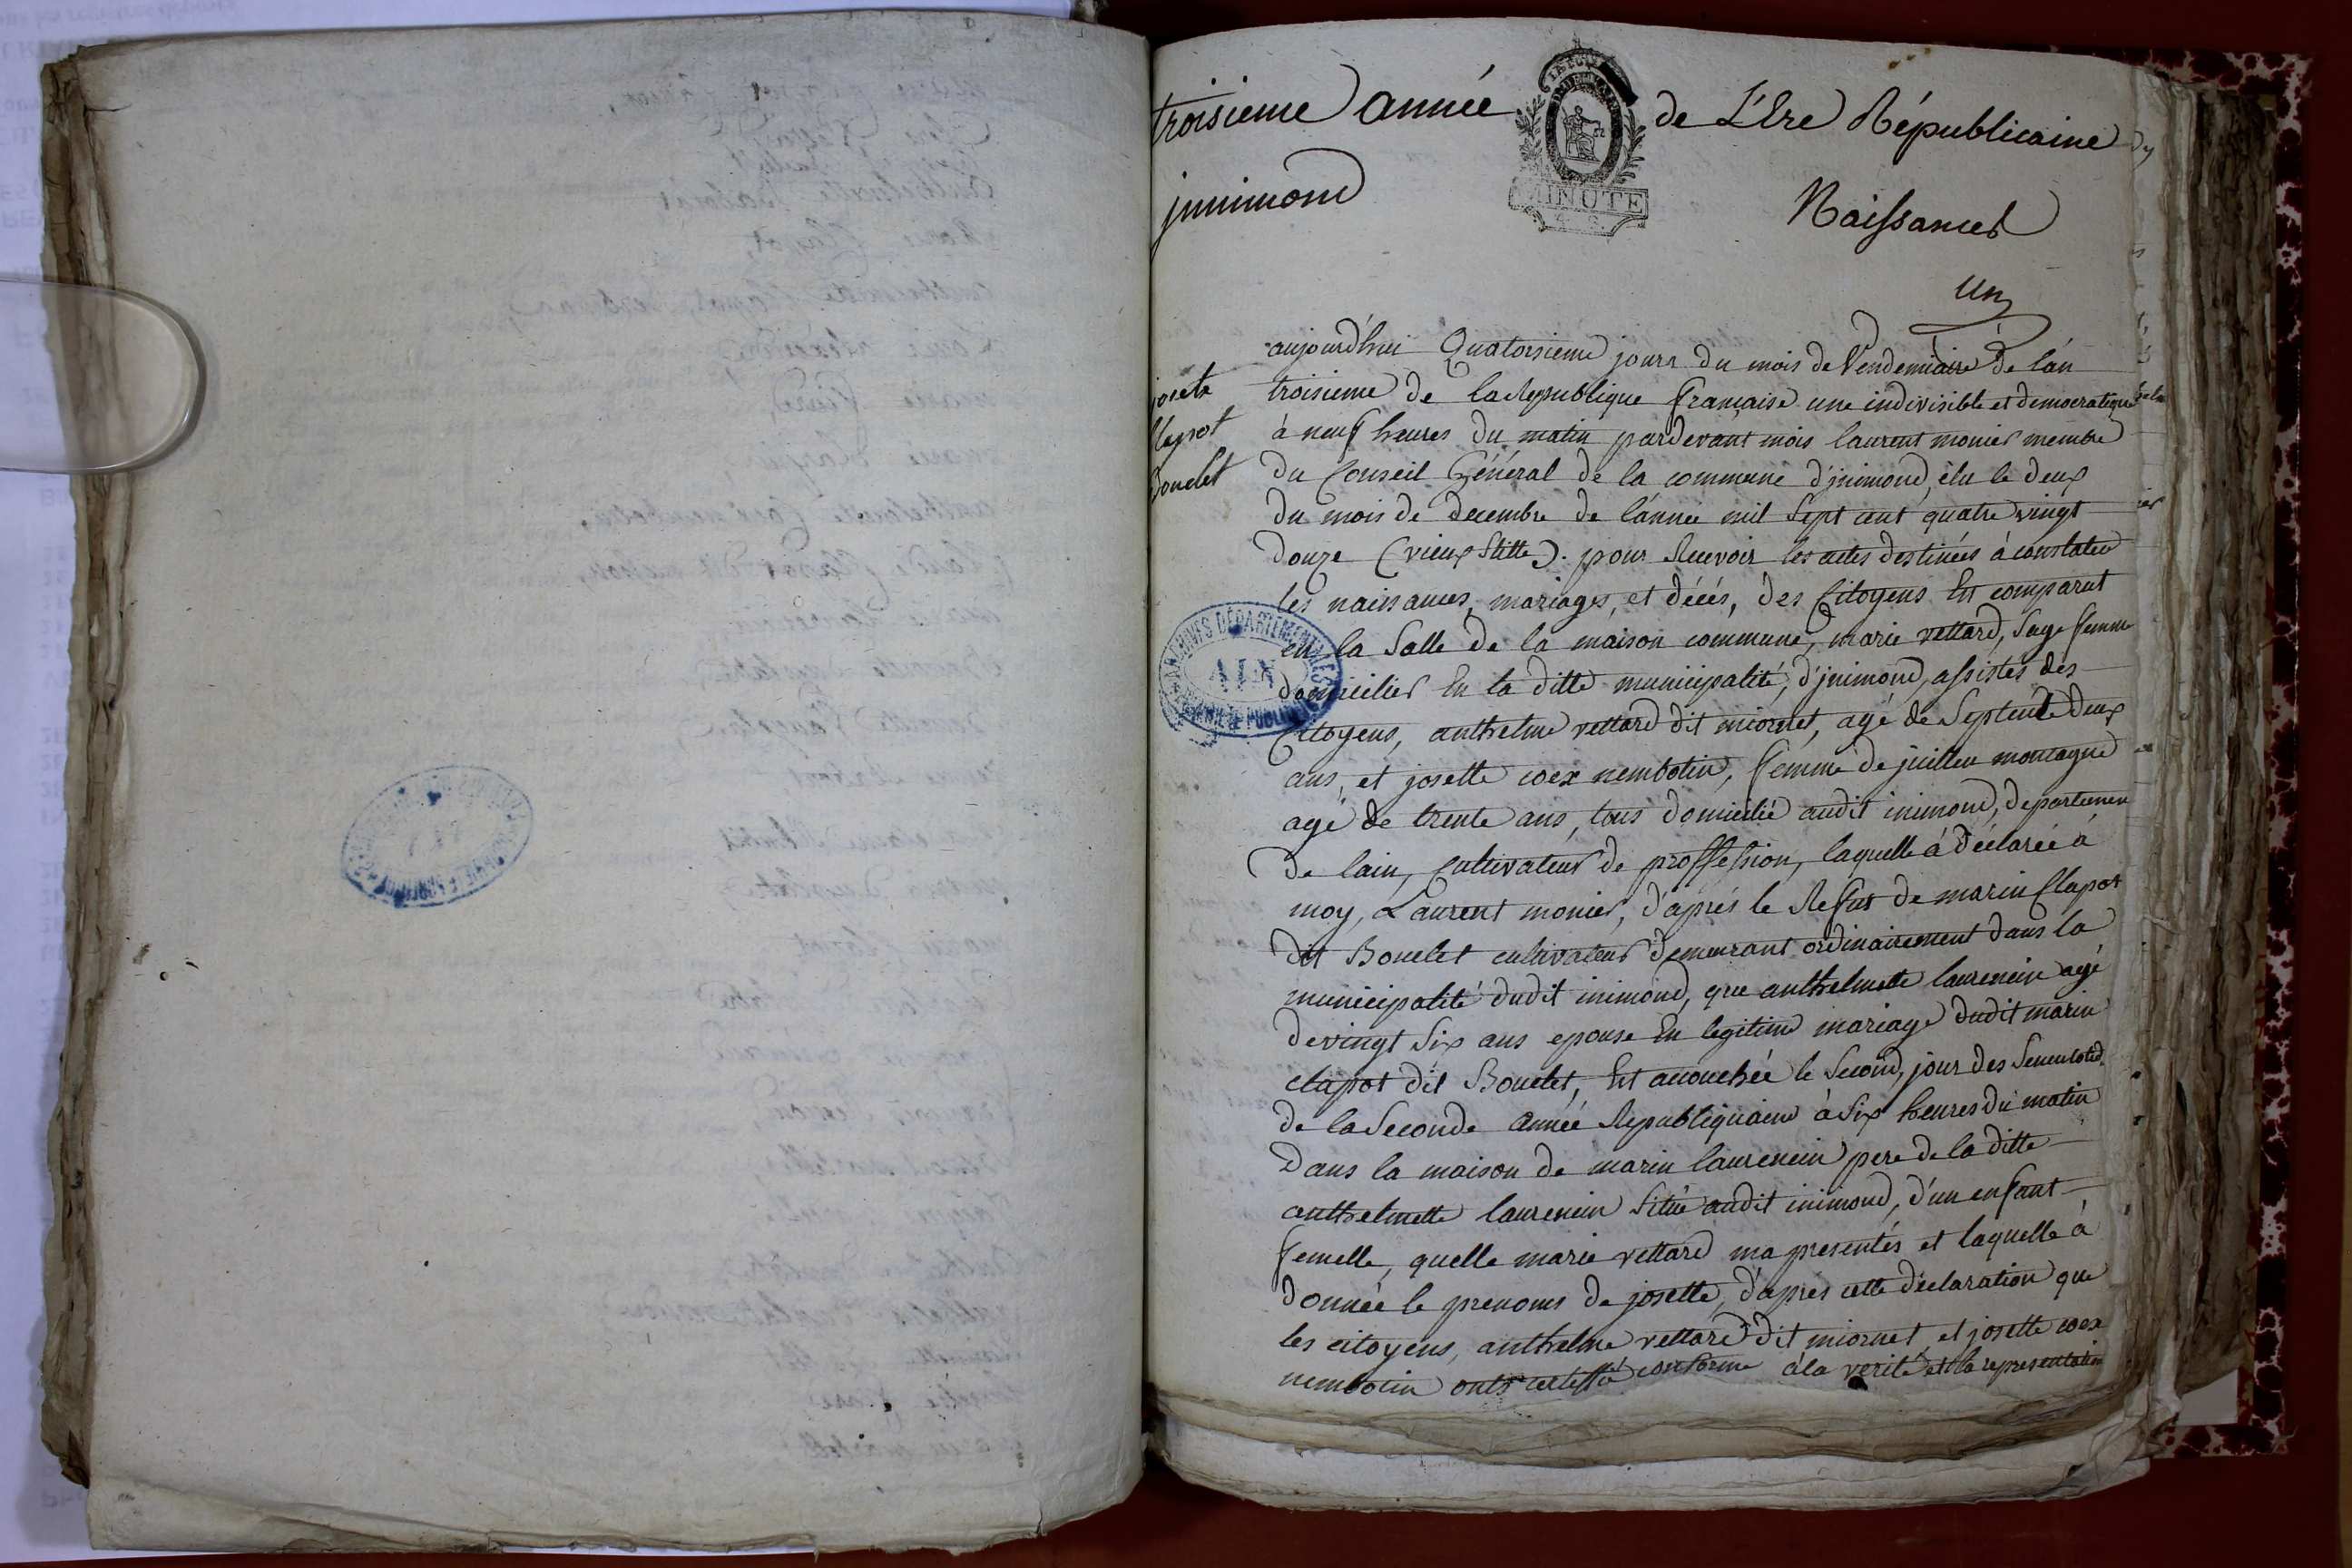 troisieme année de L'Ere Républicaine
jnnimond Naissances
MINUTE
un
josete
Clapot
Bouclet
aujourd'hui Quatorsieme jours du mois de Vendemiaire de l'an
troisieme de la Republique française une indivisible et democratique
à neuf heures du matin pardevant mois laurent monier membre
du Conseil Général de la commune d'jnimond, élu le deux
du mois de decembre de l'année mil Sept cent quatre vingt
douze (vieux Stitte). pour Recevoir les actes destinées à constater
les naissances, mariages, et décés, des Citoyens Est comparut
en la Salle de la maison commune, marie vettard, Sage femme
domicilier En la ditte municipalité, d'jnimond, assistés des
Citoyens, anthelme vettard dit miornet, agé de Septente deux
ans, et josette coex nembotin, femme de juillen montagne
agé de trente ans, tous domicilié audit inimond, departemen
de lain, cultivateur de proffession, laquelle à déclarée à
moy, Laurent monier, d'aprés le Refus de marin Clapot
dit Bouclet cultivateur demeurant ordinairement dans la
municipalité dudit inimond, que anthelmette laurencin agé
de vingt Six ans epouse En legitime mariage dudit marin
clapot dit Bouclet, Est acouchée le Second, jour des
de la Seconde année Republiquaine à Six heures du matin
Dans la maison de marin laurencin pere de la ditte
anthelmette laurencin Situé audit inimond, d'un enfant
femelle, quelle marie vettard ma presentés et laquelle à
donnée le prenoms de josette, d'aprés cette déclaration que
les citoyens, anthelme vettard dit miornet, et josette coex
nembotin onts certiffié conforme à la verité et la representation
ARCHIVES DÉPARTEMENTALES
AIN